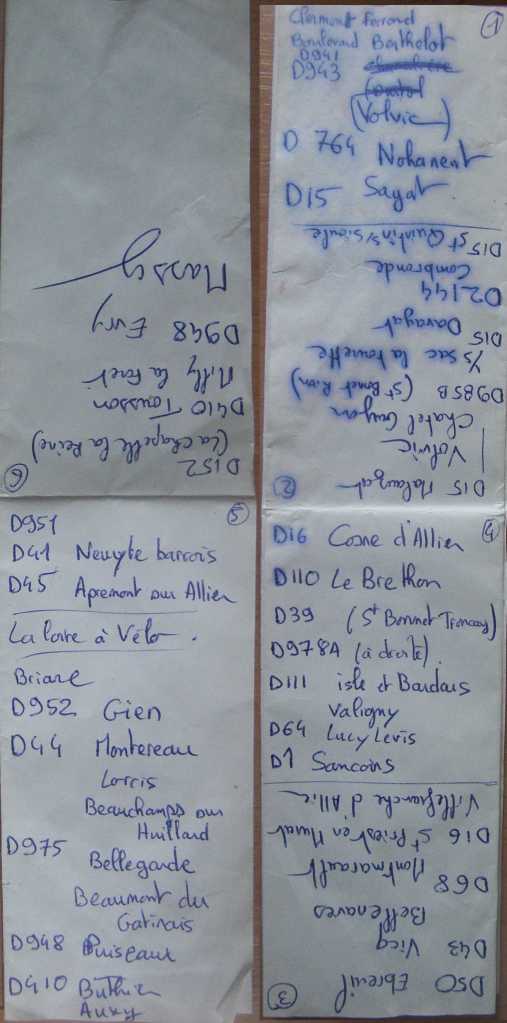 1
Clermont Ferrand
Boulevard Berthelot
D941
D943
(Volvic)
D 764 Nohanent
D15 Sayat
2
D15 Malauzat
Volvic
Chatel Guyon
D985B (St Bonnet Riom)
Y/s sac la tourette
D15 Davayat
D2144
Combronde
D15 St Quintin s/sioule
3
D50 Ebreuil
D43 Vicq
Bellenaves
D68 Montmarault
D16 St Priest en Murat
Villefranche d'Allier
4
D16 Cosne d'Allier
D110 Le Brethon
D39 (St Bonnet Troncay)
D978A (à droite)
D111 isle et Bardais
Valigny
D64 Lucy Levis
D1 Sancoins
5
D951
D41 Neuvyte barrois
D45 Apremont sur Allier
La loire à Vélo.
Briare
D952 Gien
D44 Montereau
Lorris
Beauchamps sur
Huillard
D975 Bellegarde
Beaumont du
Gatinais
D948 Puiseaux
D410 Buthier
Auxy
6
D152 (La chapelle la Reine)
D410 Tousson
Milly la Foret
D948 Evry
Massy